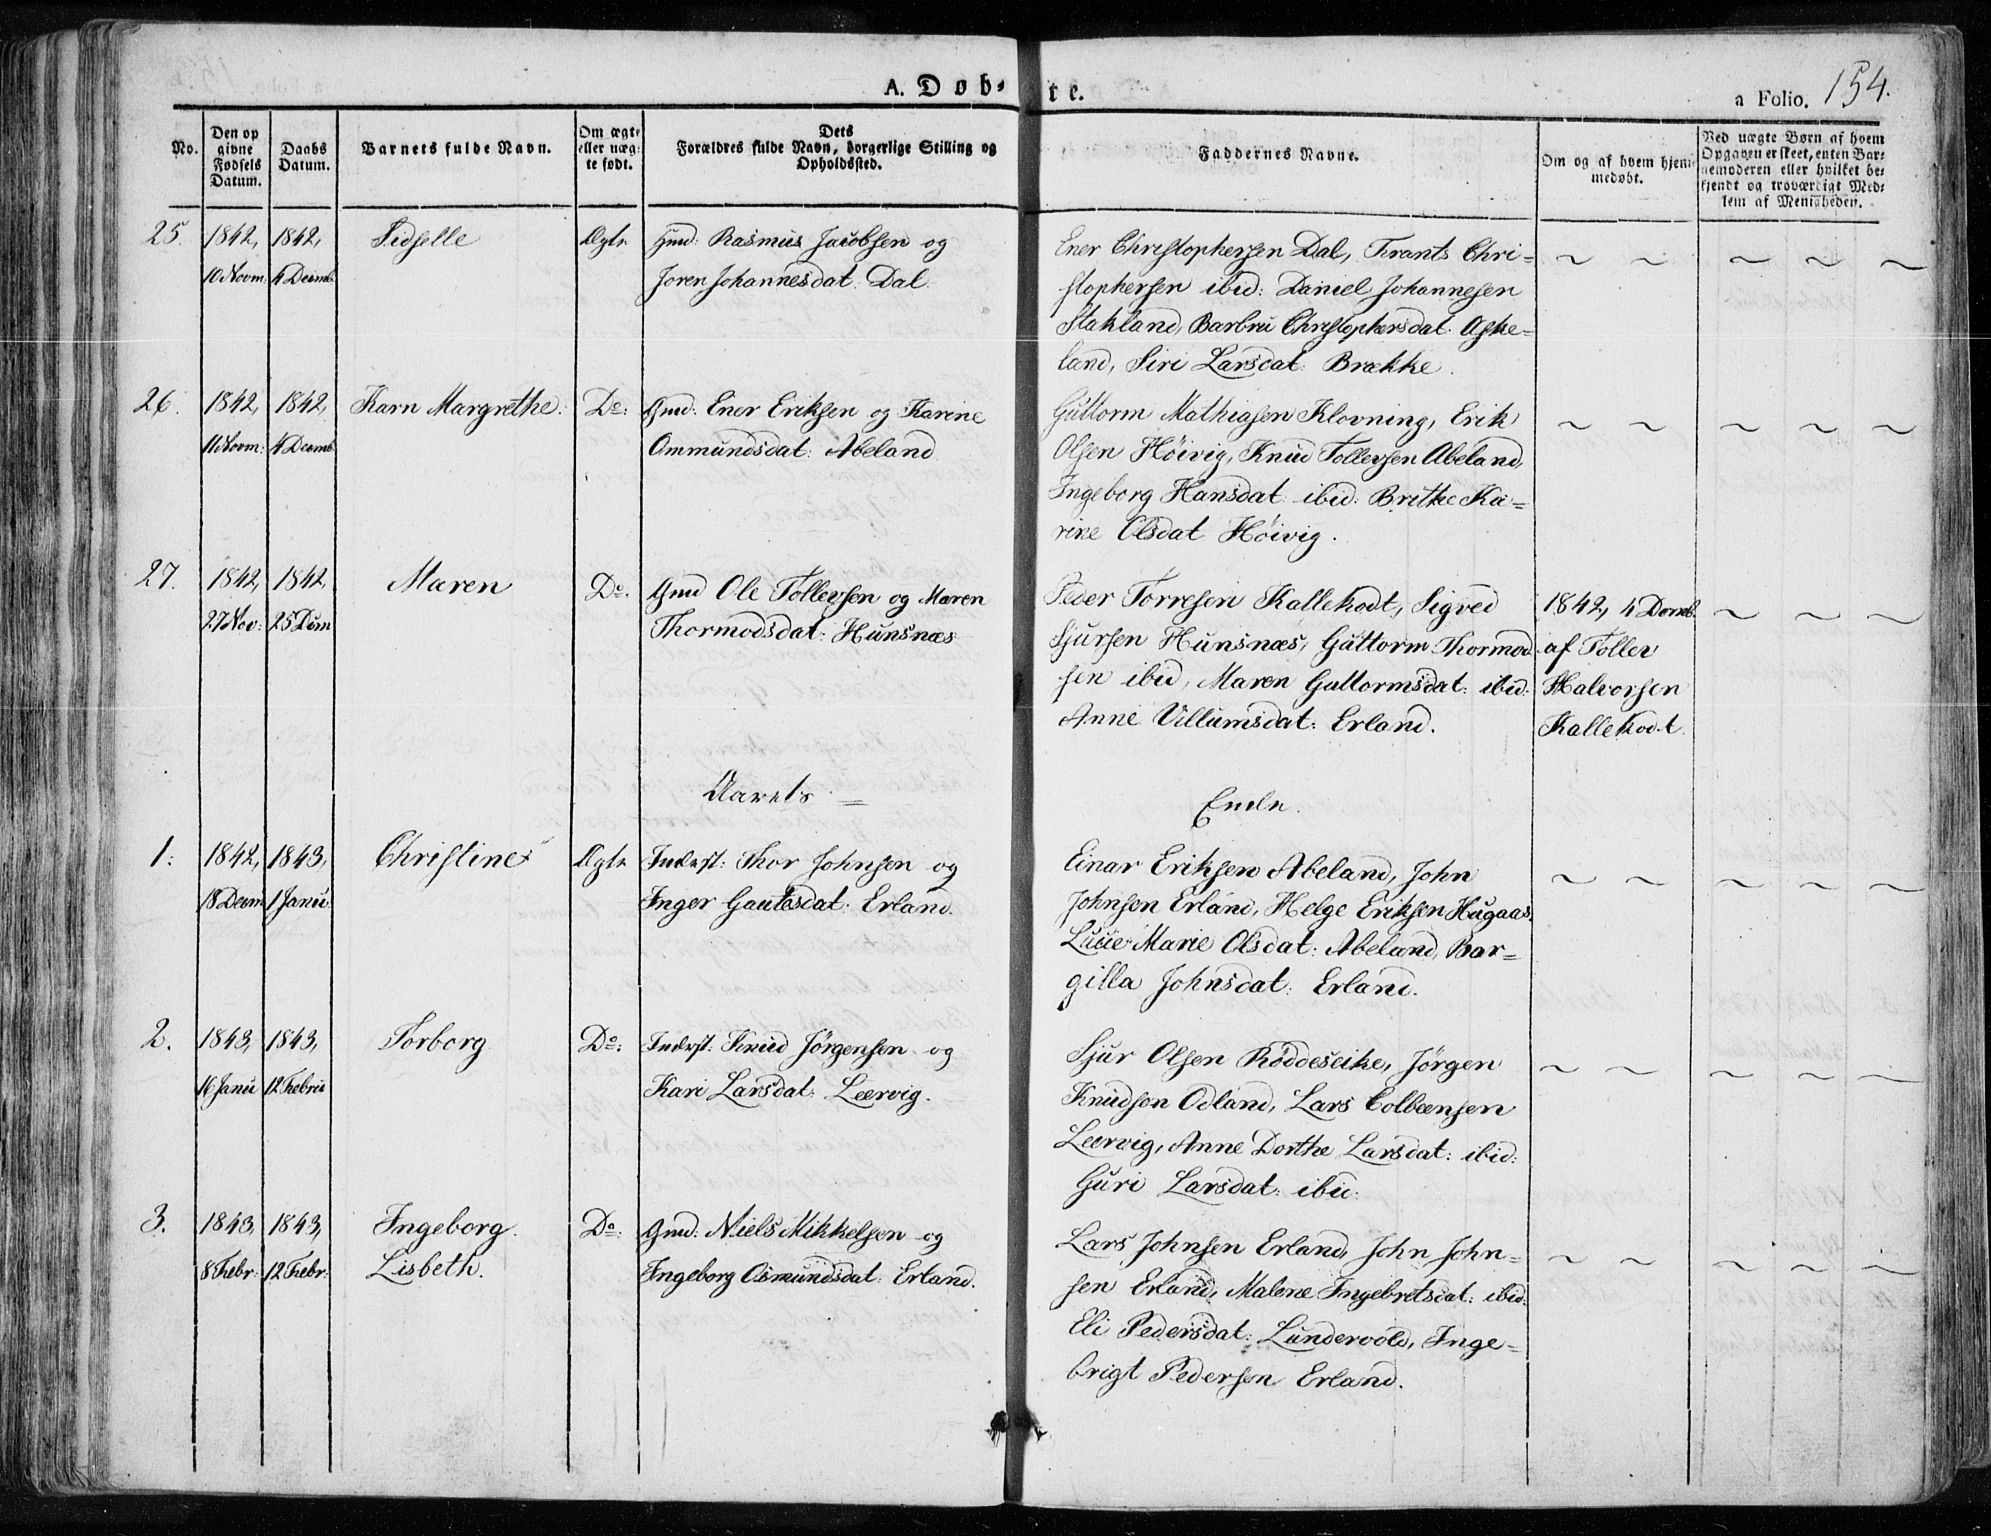 A. Døb-
te.
a Folio. 154.
No.
Den op
givne
Fødsels
Datum.
Daabs
Datum.
Barnets fulde Navn.
Om ægte
eller uæg-
te født.
Dets
Forældres fulde Navn, borgerlige Stilling og
Opholdssted.
Faddernes Navne.
Om og af hvem hjem-
medøbt.
Ved uægte Børn af hvem
Opgaven er skeet, enten Bar-
nemoderen eller hvilket be-
kjendt og troværdigt Med-
lem af Menigheden.
25. 1842, 1842, Sidselle Ægte Gmd: Rasmus Jacobsen og
10 Novm: 4 Decmb. Joren Johannesdat: Dal.
Ener Christophersen Dal, Trants Chri=
stophersen ibid: Daniel Johannesen
Stakland, Barbru Christophersdat: Aske=
land, Siri Larsdat: Brække.
26. 1842, 1842, Karn Margrethe. Do: Gmd: Ener Eriksen og Karine
11 Novm: 4 Decmb. Ommundsdat: Abeland
Guttorm Mathiasen Klovning, Erik
Olsen Høivig, Knud Tollevsen Abeland,
Ingeborg Hansdat: ibid. Brithe Ka=
rine Olsdat Høivig.
27. 1842, 1842 Maren Do. Gmd Ole Tollevsen og Maren
27 Nov: 25 Dcm Thormodsdat: Hunsnæs
Peder Torresen Kallekodt, Sigved
Sjursen Hunsnæs, Guttorm Thormod
sen ibid, Maren Guttormsdat: ibid.
Anne Villumsdat: Erland.
1842, 4 Decmb.
af Tollev
Halvorsen
Kallekodt.
Aarets =
Ende.
1. 1842, 1843, Christine Ægte Inderst: Thor Johnsen og
18 Decm 1 Janu: Inger Gautesdat: Erland.
Einar Eriksen Abeland, John
Johnsen Erland, Helge Eriksen Hugaas,
Lucie Marie Olsdat: Abeland, Bar=
gilla Johnsdat: Erland.
2. 1843, 1843, Torborg Do: Inderst: Knud Jörgensen og
16 Janu 12 Febru Kari Larsdat: Leervig.
Sjur Olsen Röddeseike, Jørgen
Knudsen Odland, Lars Colbeensen
Leervig, Anne Dorthe Larsdat: ibid:
Guri Larsdat: ibid:
3. 1843, 1843, Ingeborg Do: Gmd: Niels Mikkelsen og
8 Febr: 12 Febr: Lisbeth. Ingeborg Osmundsdat: Erland.
Lars Johnsen Erland, John John=
sen Erland, Malene Ingebretsdat: ibid:
Eli Pedersdat: Lundevold, Inge=
brigt Pedersen Erland.